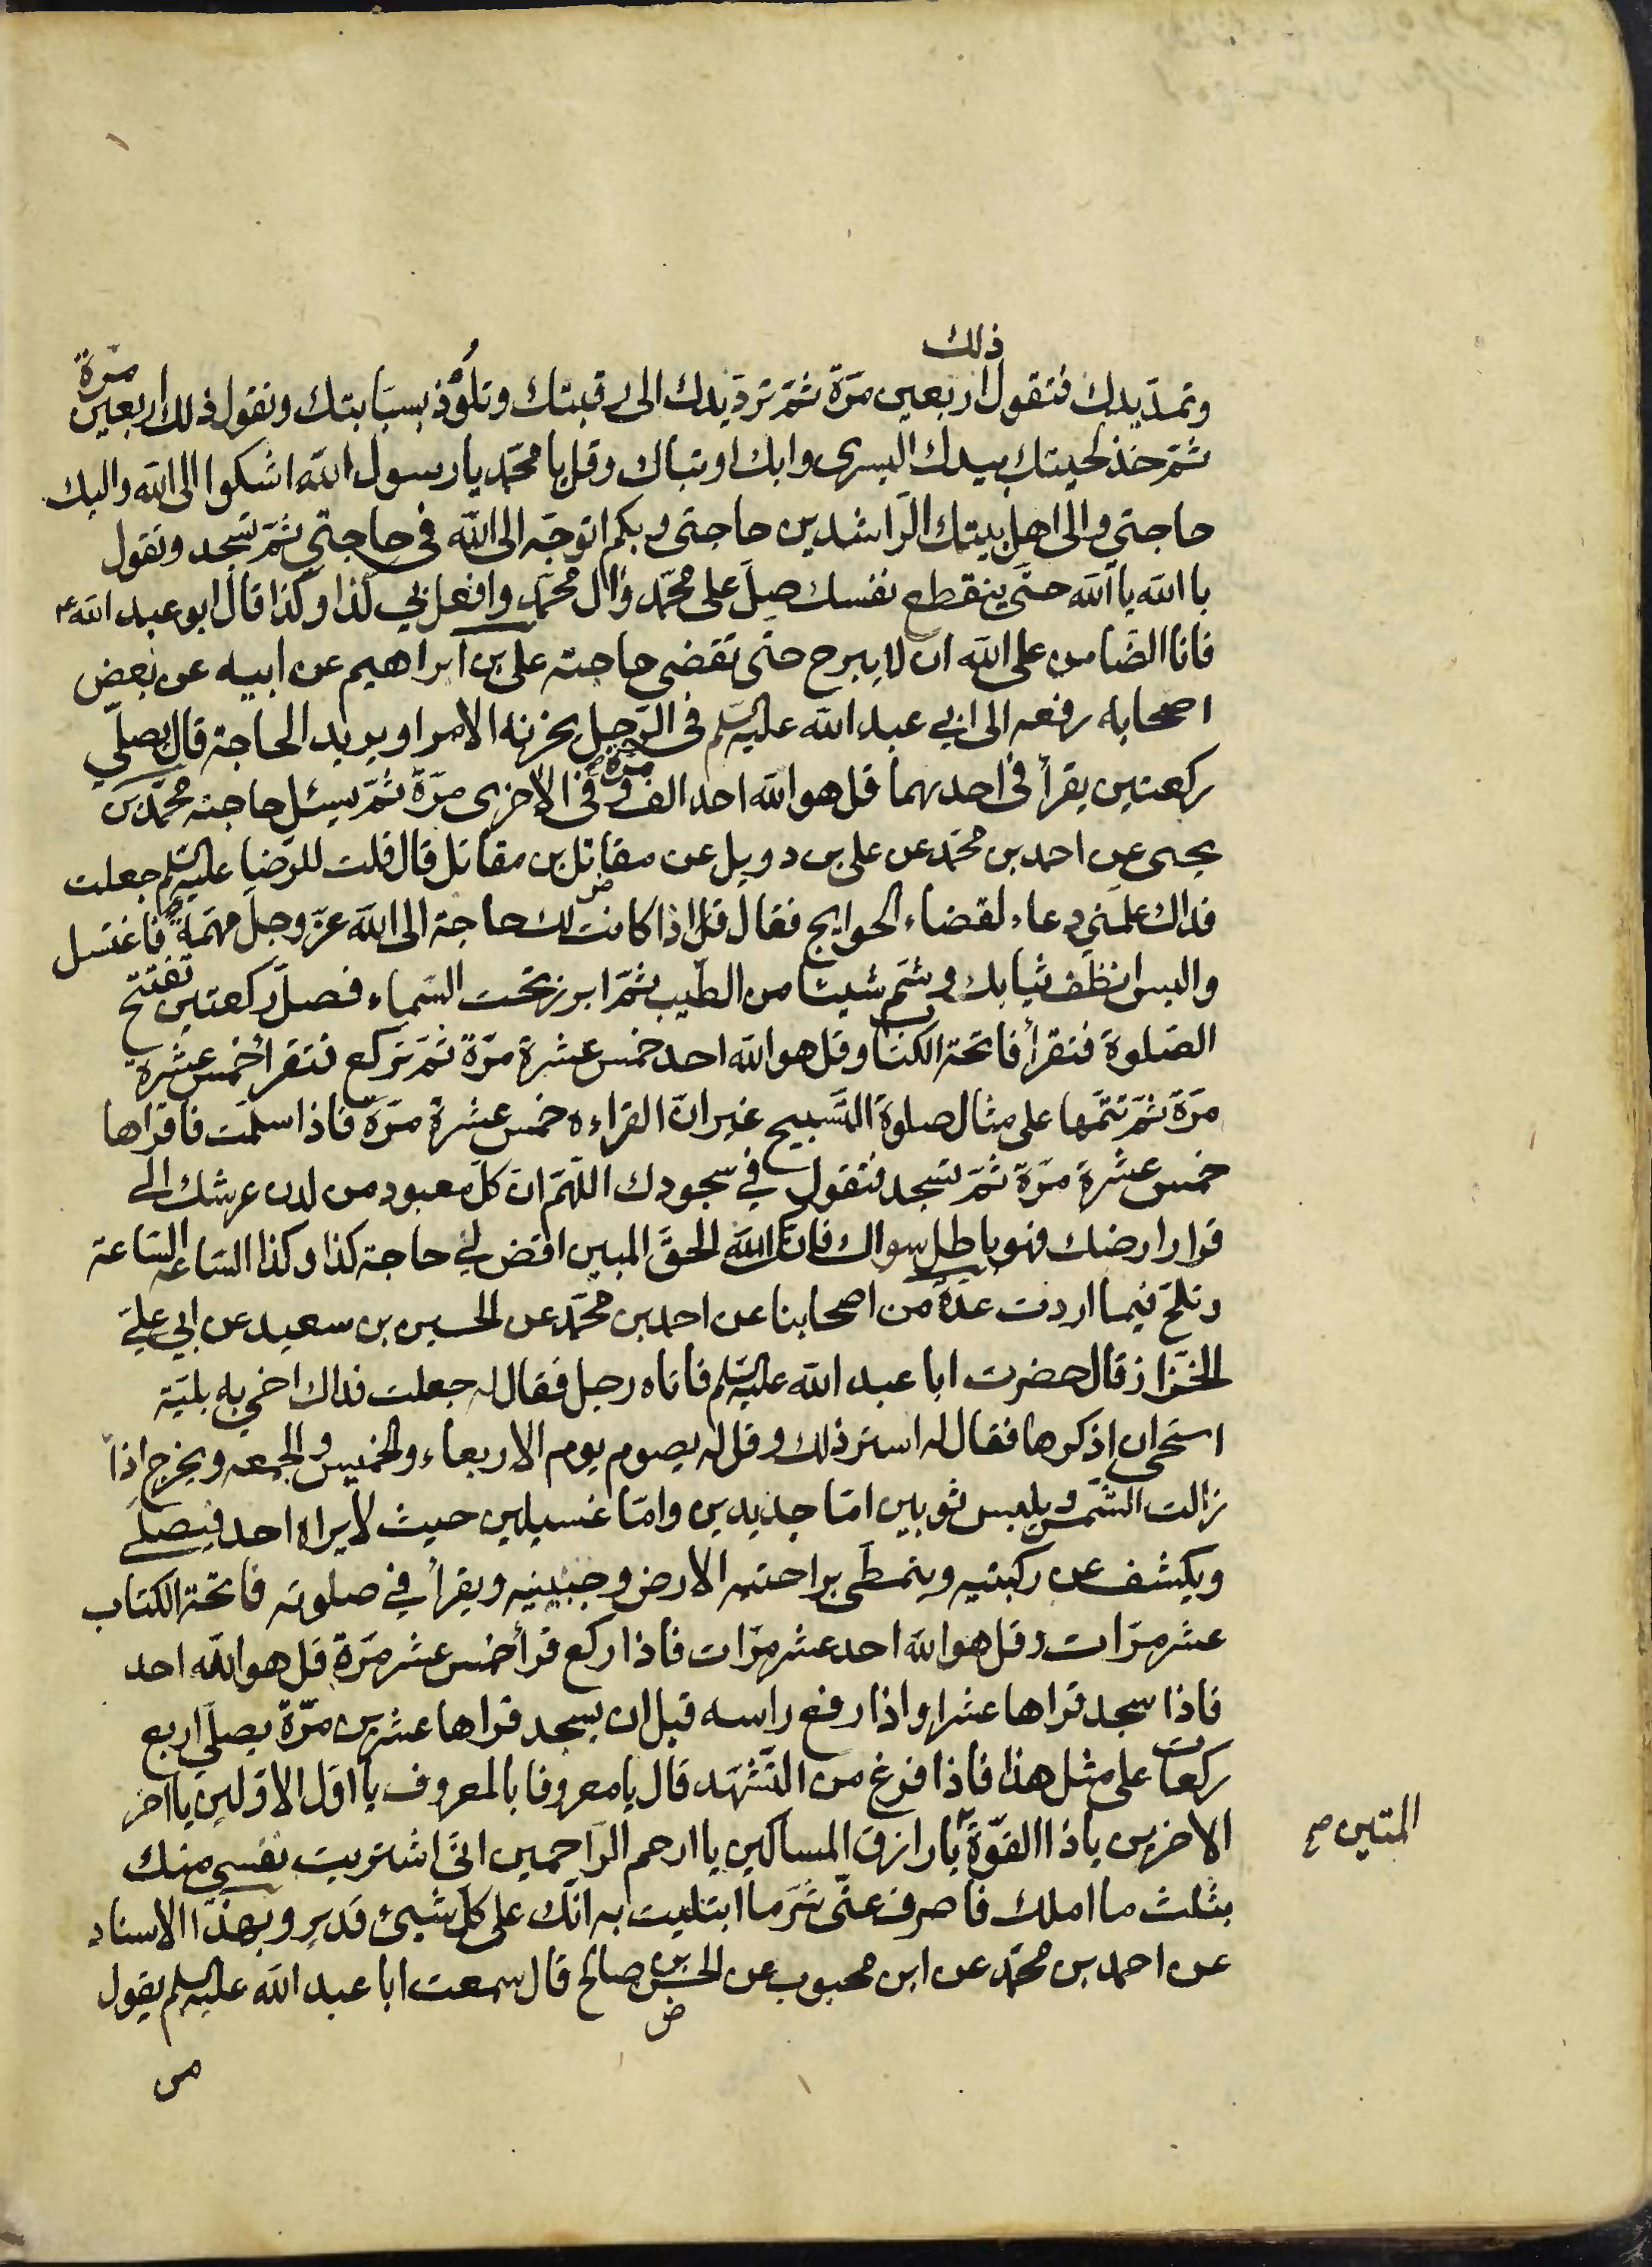 ذلك
وتمدّ يدك فتقول اربعين مرّة ثمّ تردّ يدك الى رقبتك وتلوّذ بسبّابتك وتقول ذلك اربعين مرّة
ثمّ خذ لحيتك بيدك اليسرى وابك او تباك وقل يا محمّد يا رسول الله اشكوا الى الله واليك
حاجتي والى اهل بيتك الرّاشدين حاجتي وبكم اتوجّه الى الله في حاجتي ثمّ تسجد وتقول
يا الله يا الله حتّى ينقطع نفسك صلّ على محمّد وال محمّد وافعل بي كذا وكذا قال ابو عبد الله ع
فانا الضّامن على الله ان لا يبرح حتّى تقضى حاجته على بن ابراهيم عن ابيه عن بعض
اصحابه رفعه الى ابي عبد الله عليه السّلم في الرّجل يحزنه الامر او يريد الحاجة قال يصلّي
ركعتين يقرأ في احدیهما قل هو الله احد الف مرّة وفي الاخرى مرّة ثمّ يسئل حاجته محمّد بن
يحيى عن احمد بن محمّد عن على بن دويل عن مقاتل بن مقاتل قال قلت للرّضا عليه السّلم جعلت
فداك علّمني دعاء لقضاء الحوايج فقال قل اذا كانت لك حاجة الى الله عزّ وجلّ مهمّة فاغتسل
والبس انظف ثيابك وشمّ شيئا من الطّيب ثمّ ابرز تحت السّماء فصلّ ركعتين تفتتح
الصّلوة فتقرأ فاتحة الكتاب وقل هو الله احد خمس عشرة مرّة ثمّ تركع فتقرأ خمس عشرة
مرّة ثمّ تتمّها على مثال صلوة التّسبيح غير انّ القراءه خمس عشرة مرّة فاذا سلّمت فاقراها
خمس عشرة مرّة ثمّ تسجد فتقول في سجودك اللّهمّ انّ كلّ معبود من لدن عرشك الى
قرار ارضك فهو باطل سواك فانّك الله الحقّ المبين اقض لي حاجة كذا وكذا السّاعه السّاعة
وتلحّ فيما اردت عدّة من اصحابنا عن احمد بن محمّد عن الحسين بن سعيد عن ابي علي
الخزّاز قال حضرت ابا عبد الله عليه السّلم فاتاه رجل فقال له جعلت فداك اخي به بليّة
استحي ان اذكرها فقال له استر ذلك وقل له يصوم يوم الاربعاء والخميس والجمعه ويخرج اذا
زالت الشّمس ويلبس ثوبين امّا جديدين وامّا غسيلين حيث لا يراه احد فيصلّي
ويكشف عن ركبتيه ويتمطّى براحتيه الارض وجبينيه ويقرأ في صلوته فاتحة الكتاب
عشر مرّات وقل هو الله احد عشر مرّات فاذا ركع قرأ خمس عشر مرّة قل هو الله احد
فاذا سجد قراها عشرا واذا رفع راسه قبل ان يسجد قراها عشرين مرّة يصلّي اربع
ركعات على مثل هذا فاذا فرغ من التّشهّد قال يا معروفا بالمعروف يا اوّل الاوّلين يا اخر
الاخرين يا ذا القوّة يا رازق المساكين يا ارحم الرّاحمين انّي اشتريت نفسي منك
المتين صح
بثلث ما املك فاصرف عنّى شرّ ما ابتليت به انّك على كلّ شيئ قدير وبهذا الاسناد
عن احمد بن محمّد عن ابن محبوب عن الحسن بن صالح قال سمعت ابا عبد الله عليه السّلم يقول
من